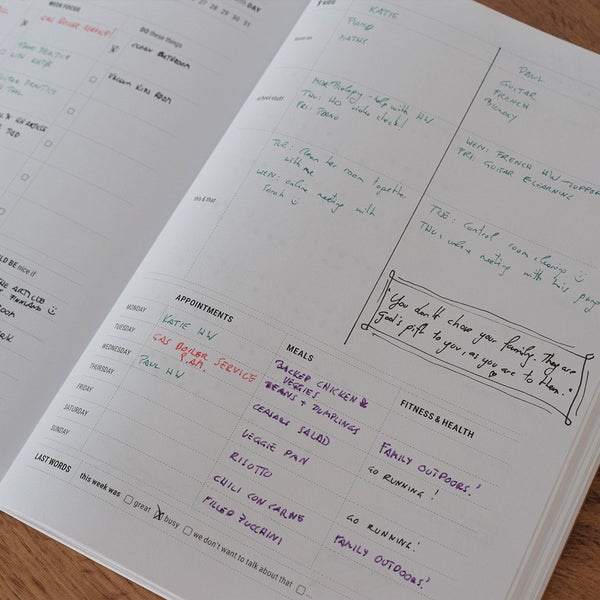 27 28 29 30 31
DAY
WEEK FOCUS
GAS BOILER SERVICE!
DO these things
CLEAN BATHROOM
VACUUM KIDS ROOM
PRACTICE
WITH KATIE
PRACTICE
LD BE nice if
KIDS
KATIE
PIANO
MATHS
school stuff
help with HW
THU: HO video check!
FRI: PIANO
this & that
TUE: Clean her room together
with me
WEN: online meeting with
Sarah
PAUL
GUITAR
FRENCH
BIOLOGY
WEN: FRENCH HW - SUPPOR
FRI: GUITAR E-LEARNING
TUE: Control room cleanup
THU: online meeting with his gang
"You don't chose your family. They are
God's gift to you, as you are to them."
APPOINTMENTS
MONDAY
KATIE HW
TUESDAY
GAS BOILER SERVICE
WEDNESDAY
PAUL HW
THURSDAY
FRIDAY
SATURDAY
SUNDAY
MEALS
BACKED CHICKEN &
VEGGIES
BEANS + DUMPLINGS
CEASAR SALAD
VEGGIE PAN
RISOTTO
CHILI CON CARNE
FILLED ZUCCHINI
FITNESS & HEALTH
FAMILY OUTDOORS!
GO RUNNING!
GO RUNNING!
FAMILY OUTDOORS!
LAST WORDS
this week was
great
busy
we don't want to talk about that